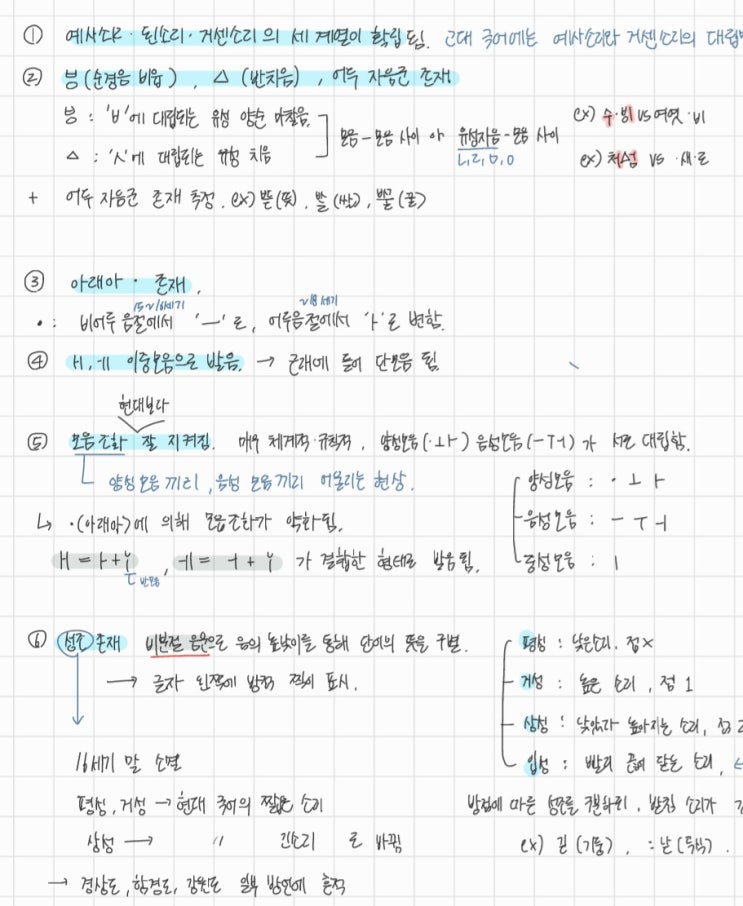 ① 예사소리·된소리·거센소리의 세 계열이 확립됨. 고대 국어에는 예사소리와 거센소리의 대립
② ㅸ(순경음 비읍), ㅿ(반치음), 어두 자음군 존재
ㅸ : 'ㅂ'에 대립되는 유성 양순 마찰음
ㅿ : 'ㅅ'에 대립되는 유성 치음
모음-모음 사이 or 유성자음-모음 사이
ㄴ,ㄹ,ㅁ,ㅇ
ex) 수·ᄫᅵ vs 여엿·비
ex) 처ᅀᅥᆷ vs ·새·로
+ 어두 자음군 존재 추정. ex) ᄠᅳᆮ(뜻), ᄡᆞᆯ(쌀), ᄢᅮᆯ(꿀)
③ 아래아 · 존재.
15~16세기 ~18세기
• : 비어두 음절에서 'ㅡ'로, 어두음절에서 'ㅏ'로 변함.
④ ㅐ,ㅔ 이중모음으로 발음. → 근래에 들어 단모음 됨.
현대보다
⑤ 모음조화 잘 지켜짐. 매우 체계적·규칙적, 양성모음(·ㅗㅏ) 음성모음(ㅡㅜㅓ)가 서로 대립함.
양성모음 끼리, 음성 모음끼리 어울리는 현상.
양성모음 : · ㅗ ㅏ
음성모음 : ㅡ ㅜ ㅓ
중성모음 : ㅣ
↳ ·(아래아)에 의해 모음조화가 약화됨.
ㅐ = ㅏ + y, ㅔ = ㅓ + y 가 결합한 형태로 발음됨.
반모음
⑥ 성조 존재 비분절 음운으로 음의 높낮이를 통해 단어의 뜻을 구별.
→ 글자 왼쪽에 방점 찍어 표시.
평성 : 낮은소리. 점 ×
거성 : 높은 소리, 점 1
상성 : 낮았다 높아지는 소리, 점 2
입성 : 빨리 끝어 닫는 소리,
16세기 말 소멸
평성, 거성 → 현대 국어의 짧은 소리
상성 → 〃 긴소리 로 바뀜
→ 경상도, 함경도, 강원도 일부 방언에 흔적
방점에 따른 성조를 구분하되, 받침 소리가
ex) 긷(기둥), :낟(곡식).